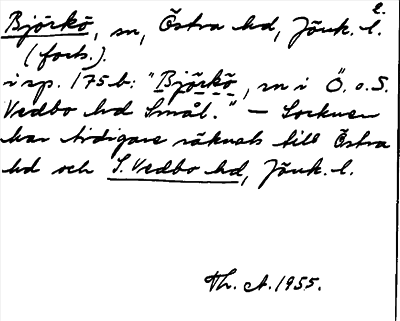 2.
Björkö, sn, Östra hd, Jönk. l.
(forts.).
i sp. 175 b: "Björkö, sn i Ö. o. S.
Vedbo hd Smål." – Socknen
har tidigare räknats till Östra
hd och S. Vedbo hd, Jönk. l.
Th. A. 1955.